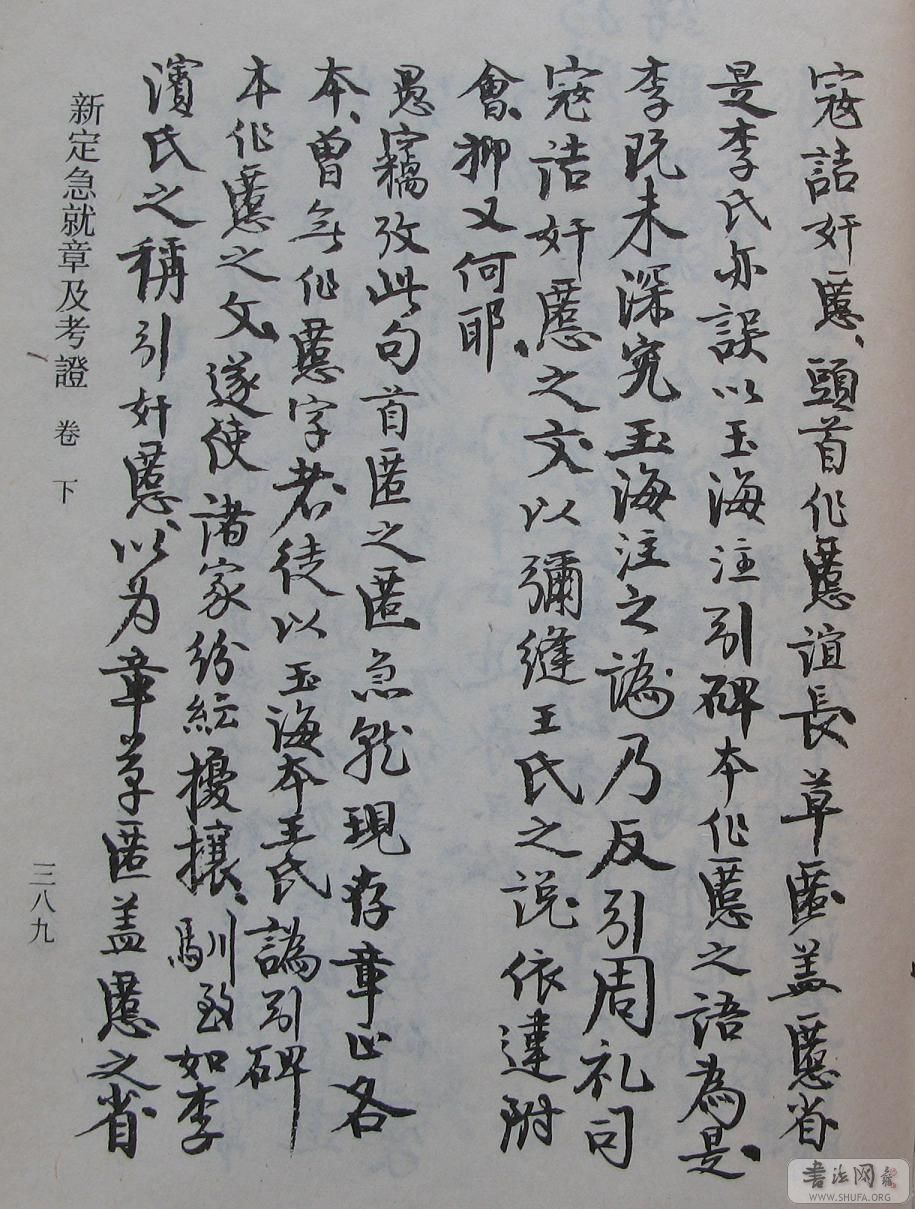 寇詰奸慝、頭首作慝誼長草匿蓋慝省
是李氏亦誤以玉海注引碑本作慝之語為是、
李既未深究玉海注之譌乃反引周礼司
寇詰奸慝之文以彌縫王氏之説依違附
會、抑又何耶、
愚竊攷此句首匿之匿急就現存章正各
本、曽无作慝字者徒以玉海本王氏譌引碑
本作慝之文、遂使諸家紛紜擾攘、馴致如李
濱氏之稱引奸慝以为章草匿蓋慝之省
新定急就章及考證 卷下
三八九
書法网
WWW.SHUFA.ORG